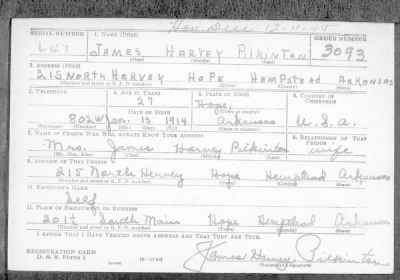 Hon. Disch. 12-11-45
SERIAL NUMBER 1. NAME (Print) ORDER NUMBER
647 JAMES HARVEY PILKINTON 3093
(First) (Middle) (Last)
2. ADDRESS (Print)
215 NORTH HERVEY HOPE HEMPSTEAD ARKANSAS
(Number and street or R. F. D. number) (Town) (County) (State)
3. TELEPHONE 4. AGE IN YEARS 5. PLACE OF BIRTH 6. COUNTRY OF CITIZENSHIP
27 Hope,
DATE OF BIRTH (Town or county)
802W Jan. 15 1914 Arkansas U.S.A.
(Exchange) (Number) (Mo.) (Day) (Yr.) (State or country)
7. NAME OF PERSON WHO WILL ALWAYS KNOW YOUR ADDRESS 8. RELATIONSHIP OF THAT PERSON
Mrs. James Harvey Pilkinton wife
(Mr., Mrs., Miss) (First) (Middle) (Last)
9. ADDRESS OF THAT PERSON
215 North Hervey Hope Hempstead Arkansas
(Number and street or R. F. D. number) (Town) (County) (State)
10. EMPLOYER'S NAME
Self
11. PLACE OF EMPLOYMENT OR BUSINESS
201½ South Main Hope Hempstead Arkansas
(Number and street or R. F. D. number) (Town) (County) (State)
I AFFIRM THAT I HAVE VERIFIED ABOVE ANSWERS AND THAT THEY ARE TRUE.
REGISTRATION CARD
D. S. S. FORM 1 James Harvey Pilkinton
(Registrant's signature)